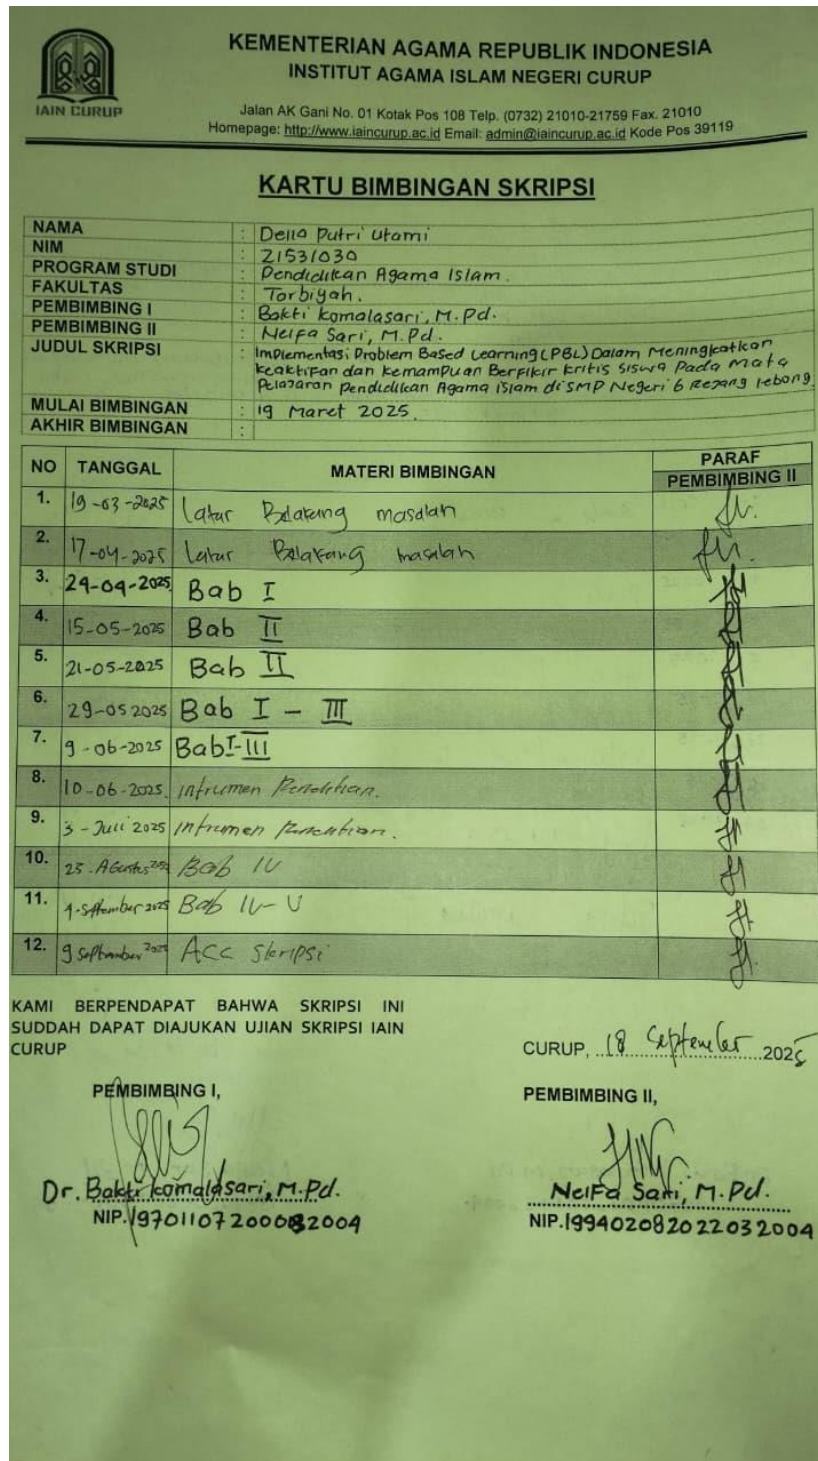 KEMENTERIAN AGAMA REPUBLIK INDONESIA
INSTITUT AGAMA ISLAM NEGERI CURUP
IAIN CURUP
Jalan AK Gani No. 01 Kotak Pos 108 Telp. (0732) 21010-21759 Fax. 21010
Homepage: http://www.iaincurup.ac.id Email: admin@iaincurup.ac.id Kode Pos 39119
KARTU BIMBINGAN SKRIPSI
NAMA : Della Putri Utami
NIM : 21531030
PROGRAM STUDI : Pendidikan Agama Islam.
FAKULTAS : Tarbiyah.
PEMBIMBING I : Bakti Komalasari, M.Pd.
PEMBIMBING II : Neifa Sari, M.Pd.
JUDUL SKRIPSI : Implementasi Problem Based Learning (PBL) Dalam Meningkatkan
Keaktifan dan Kemampuan Berfikir Kritis Siswa Pada Mata
Pelajaran Pendidikan Agama Islam di SMP Negeri 6 Rejang Lebong
MULAI BIMBINGAN : 19 Maret 2025
AKHIR BIMBINGAN :
NO TANGGAL MATERI BIMBINGAN PARAF PEMBIMBING II
1. 19-03-2025 Latar Belakang masalah
2. 17-04-2025 Latar Belakang masalah
3. 24-04-2025 Bab I
4. 15-05-2025 Bab II
5. 21-05-2025 Bab II
6. 29-05 2025 Bab I - III
7. 9-06-2025 Bab I-III
8. 10-06-2025. Intrumen Penelitian.
9. 3-Juli 2025 Intrumen Penelitian.
10. 25-Agustus Bab IV
11. 4-September 2025 Bab IV-V
12. 9 September 2025 ACC Skripsi
KAMI BERPENDAPAT BAHWA SKRIPSI INI
SUDDAH DAPAT DIAJUKAN UJIAN SKRIPSI IAIN
CURUP
CURUP, 18 September 2025
PEMBIMBING I,
PEMBIMBING II,
Dr. Bakti Komalasari, M.Pd.
NIP.
Neifa Sari, M.Pd.
NIP.199402082022032004